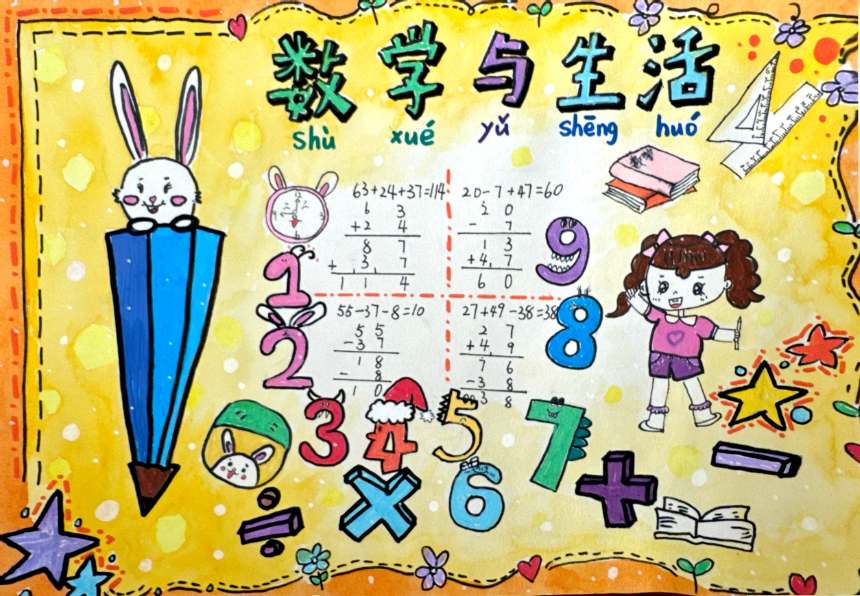 数学与生活
shù xué yǔ shēng huó
63+24+37=114
6 3
+2 4
8 7
+ 3 7
1 1 4
20-7+47=60
2 0
- 7
1 3
+4 7
6 0
55-37-8=10
5 5
-3 7
1 8
- 8
1 0
27+49-38=38
2 7
+4 9
7 6
-3 8
3 8
12
1
2
3
4
5
6
7
8
9
÷
×
+
-